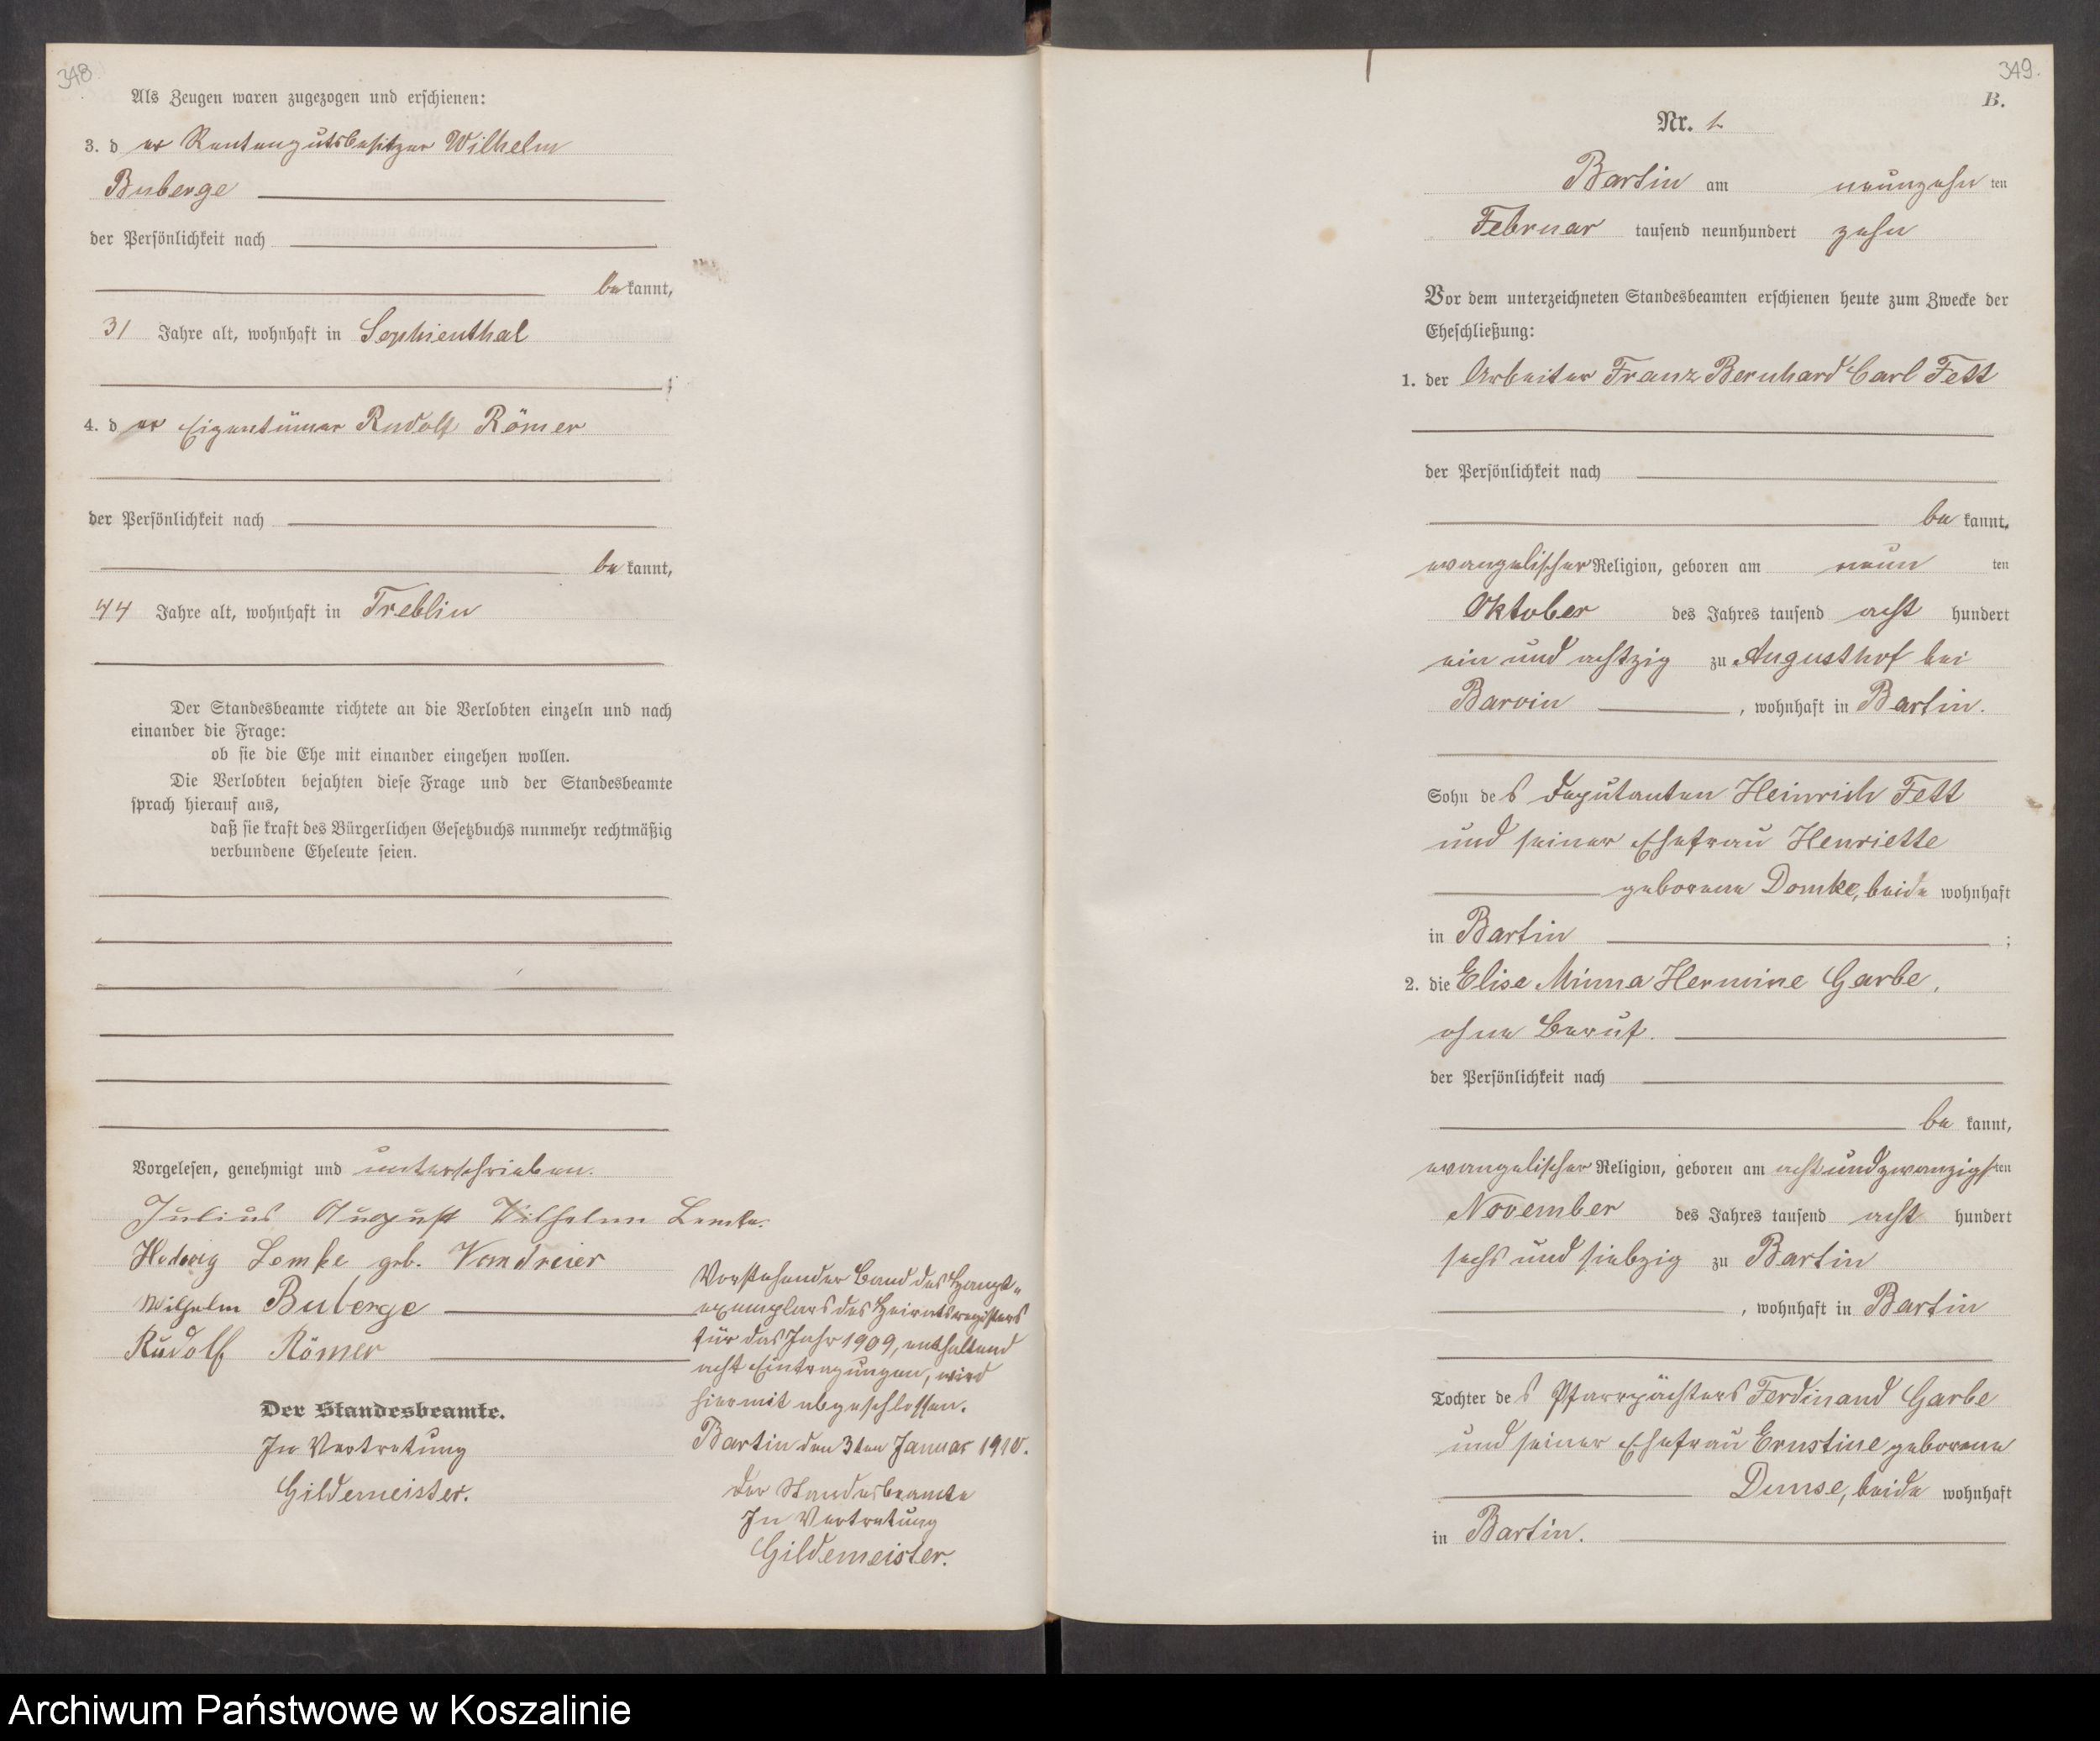 348.
Als Zeugen waren zugezogen und erschienen:
3. der Rentengutsbesitzer Wilhelm
Buberge
der Persönlichkeit nach
bekannt,
31 Jahre alt, wohnhaft in Sophienthal
;
4. der Eigentümer Rudolf Römer
der Persönlichkeit nach
bekannt,
44 Jahre alt, wohnhaft in Treblin
Der Standesbeamte richtete an die Verlobten einzeln und nach
einander die Frage:
ob sie die Ehe mit einander eingehen wollen.
Die Verlobten bejahten diese Frage und der Standesbeamte
sprach hierauf aus,
daß sie kraft des Bürgerlichen Gesetzbuchs nunmehr rechtmäßig
verbundene Eheleute seien.
Vorgelesen, genehmigt und unterschrieben.
Julius August Wilhelm Lemke.
Hedwig Lemke geb. Vomdreier
Wilhelm Buberge
Rudolf Römer
Der Standesbeamte.
In Vertretung
Gildemeister.
Vorstehender Band des Haupt-
exemplars des Heiratsregisters
für das Jahr 1909, enthaltend
acht Eintragungen, wird
hiermit abgeschlossen.
Bartin den 3ten Januar 1910.
Der Standesbeamte
In Vertretung
Gildemeister.
349.
B.
Nr. 1.
Bartin am neunzehn ten
Februar tausend neunhundert zehn
Vor dem unterzeichneten Standesbeamten erschienen heute zum Zwecke der
Eheschließung:
1. der Arbeiter Franz Bernhard Carl Fett
der Persönlichkeit nach
bekannt,
evangelischer Religion, geboren am neun ten
Oktober des Jahres tausend acht hundert
ein und achtzig zu Augusthof bei
Barvin, wohnhaft in Bartin.
Sohn des Deputanten Heinrich Fett
und seiner Ehefrau Henriette
geborene Domke, beide wohnhaft
in Bartin ;
2. die Elise Minna Hermine Garbe,
ohne Beruf.
der Persönlichkeit nach
bekannt,
evangelischer Religion, geboren am acht und zwanzigsten
November des Jahres tausend acht hundert
sechs und siebzig zu Bartin
, wohnhaft in Bartin
Tochter des Pfarrpächters Ferdinand Garbe
und seiner Ehefrau Ernstine geborene
Dumse, beide wohnhaft
in Bartin.
Archiwum Państwowe w Koszalinie